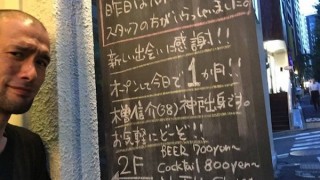 昨日は
スタッフの方がいらっしゃいました。
新しい出会いに感謝!!
オープンして今日で1か月!!
信介(38)神戸出身です。
お気軽にどーぞ!!
2F
BEER 700yen〜
Cocktail 800yen〜